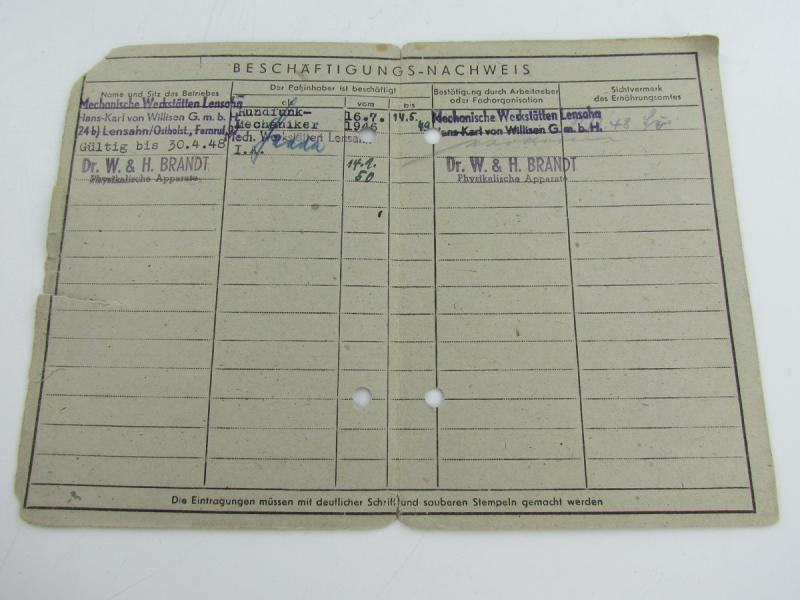 BESCHÄFTIGUNGS-NACHWEIS
Name und Sitz des Betriebes
Der Paßinhaber ist beschäftigt
als
vom
bis
Bestätigung durch Arbeitgeber
oder Fachorganisation
Sichtvermerk
des Ernährungsamtes
Mechanische Werkstätten Lensahn
Hans-Karl von Willisen G.m.b.H.
24b) Lensahn/Ostholst., Fernruf
Gültig bis 30.4.48
Rundfunk-
Mechaniker
Mech. Werkstätten Lensahn
I.A.
16.7.
1946
14.5.
49
Mechanische Werkstätten Lensahn
Hans-Karl von Willisen G.m.b.H.
48
Dr. W. & H. BRANDT
Physikalische Apparate
14.9.
50
Dr. W. & H. BRANDT
Physikalische Apparate
Die Eintragungen müssen mit deutlicher Schrift und sauberen Stempeln gemacht werden